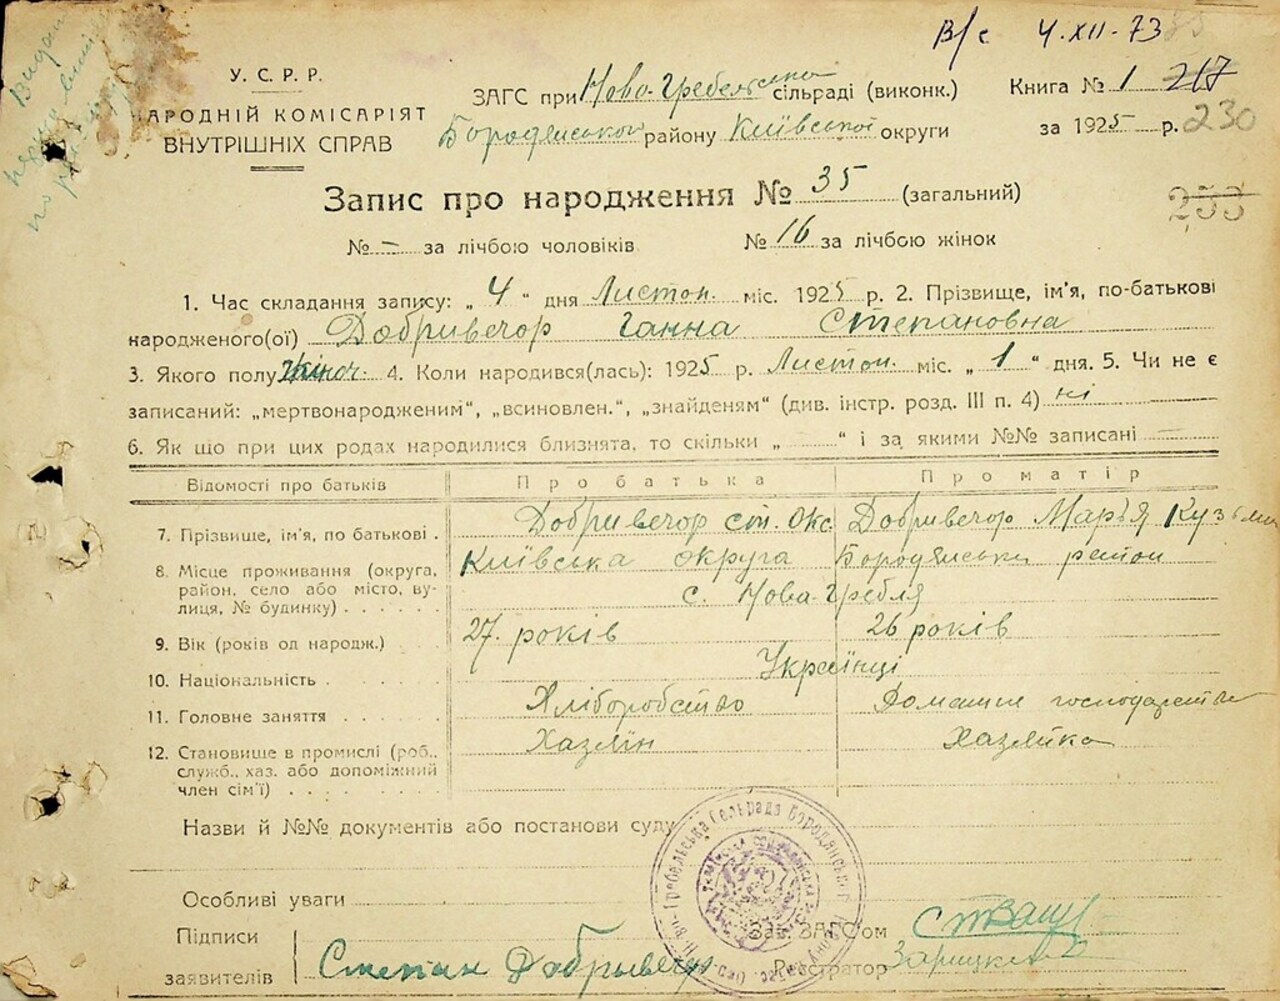 В/с 4.XII-73
У. С. Р. Р.
НАРОДНІЙ КОМІСАРІЯТ
ВНУТРІШНІХ СПРАВ
ЗАГС при Ново-Гребельська сільраді (виконк.)
Бородянського району Київської округи
Книга № 1 217
за 1925 р. 230
Запис про народження № 35 (загальний)
253
№ – за лічбою чоловіків № 16 за лічбою жінок
1. Час складання запису: „ 4 “ дня Листоп. міс. 1925 р. 2. Прізвище, ім'я, по-батькові
народженого(ої) Добривечор Ганна Степановна
3. Якого полу жіноч. 4. Коли народився(лась): 1925 р. Листоп. міс. „ 1 “ дня. 5. Чи не є
записаний: „мертвонародженим“, „всиновлен.“, „знайденям“ (див. інстр. розд. III п. 4) ні
6. Як що при цих родах народилися близнята, то скільки „ “ і за якими №№ записані —
Відомості про батьків Про батька Про матір
7. Прізвище, ім'я, по батькові . Добривечор Ст. Окс. Добривечор Мар'я Кузьм
8. Місце проживання (округа, Київська округа Бородянський район
район, село або місто, ву-
лиця, № будинку) . . . . . . с. Нова-Гребля
9. Вік (років од народж.) 27. років 26 років
10. Національність . . . . . . Українці
11. Головне заняття . . . . . . Хліборобство Домашнє господарство
12. Становище в промислі (роб., Хазяїн Хазяйка
служб., хаз. або допоміжний
член сім'ї) . . . . . . . .
Назви й №№ документів або постанови суду
Особливі уваги
Підписи
заявителів Степан Добрывечур
Зав. ЗАГС'ом
Реєстратор Зарицка